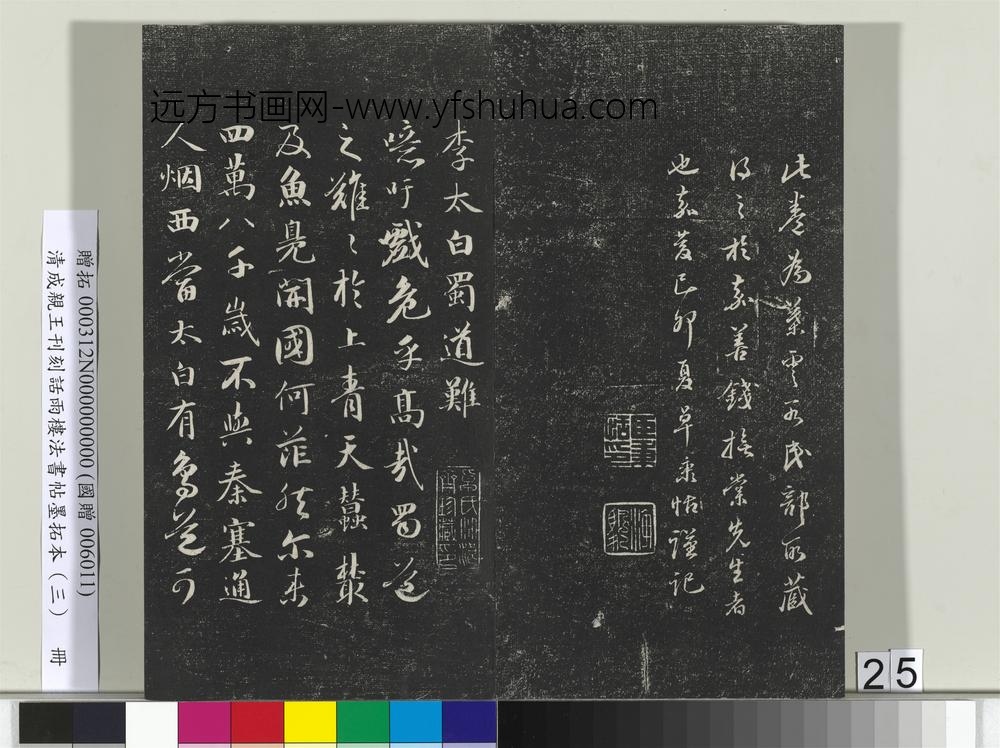 远方书画网-www.yfshuhua.com
此卷為葉雲谷民部所藏
得之於嘉善錢撫棠先生者
也嘉慶己卯夏卓秉恬謹記
李太白蜀道難
噫吁戲危乎高哉蜀道
之難〻於上青天蠶叢
及魚鳧開國何茫然尔来
四萬八千歲不與秦塞通
人烟西當太白有鳥道可
贈拓 000312N000000000(國贈 006011)
清成親王刊刻話雨樓法書帖墨拓本(三) 冊
25